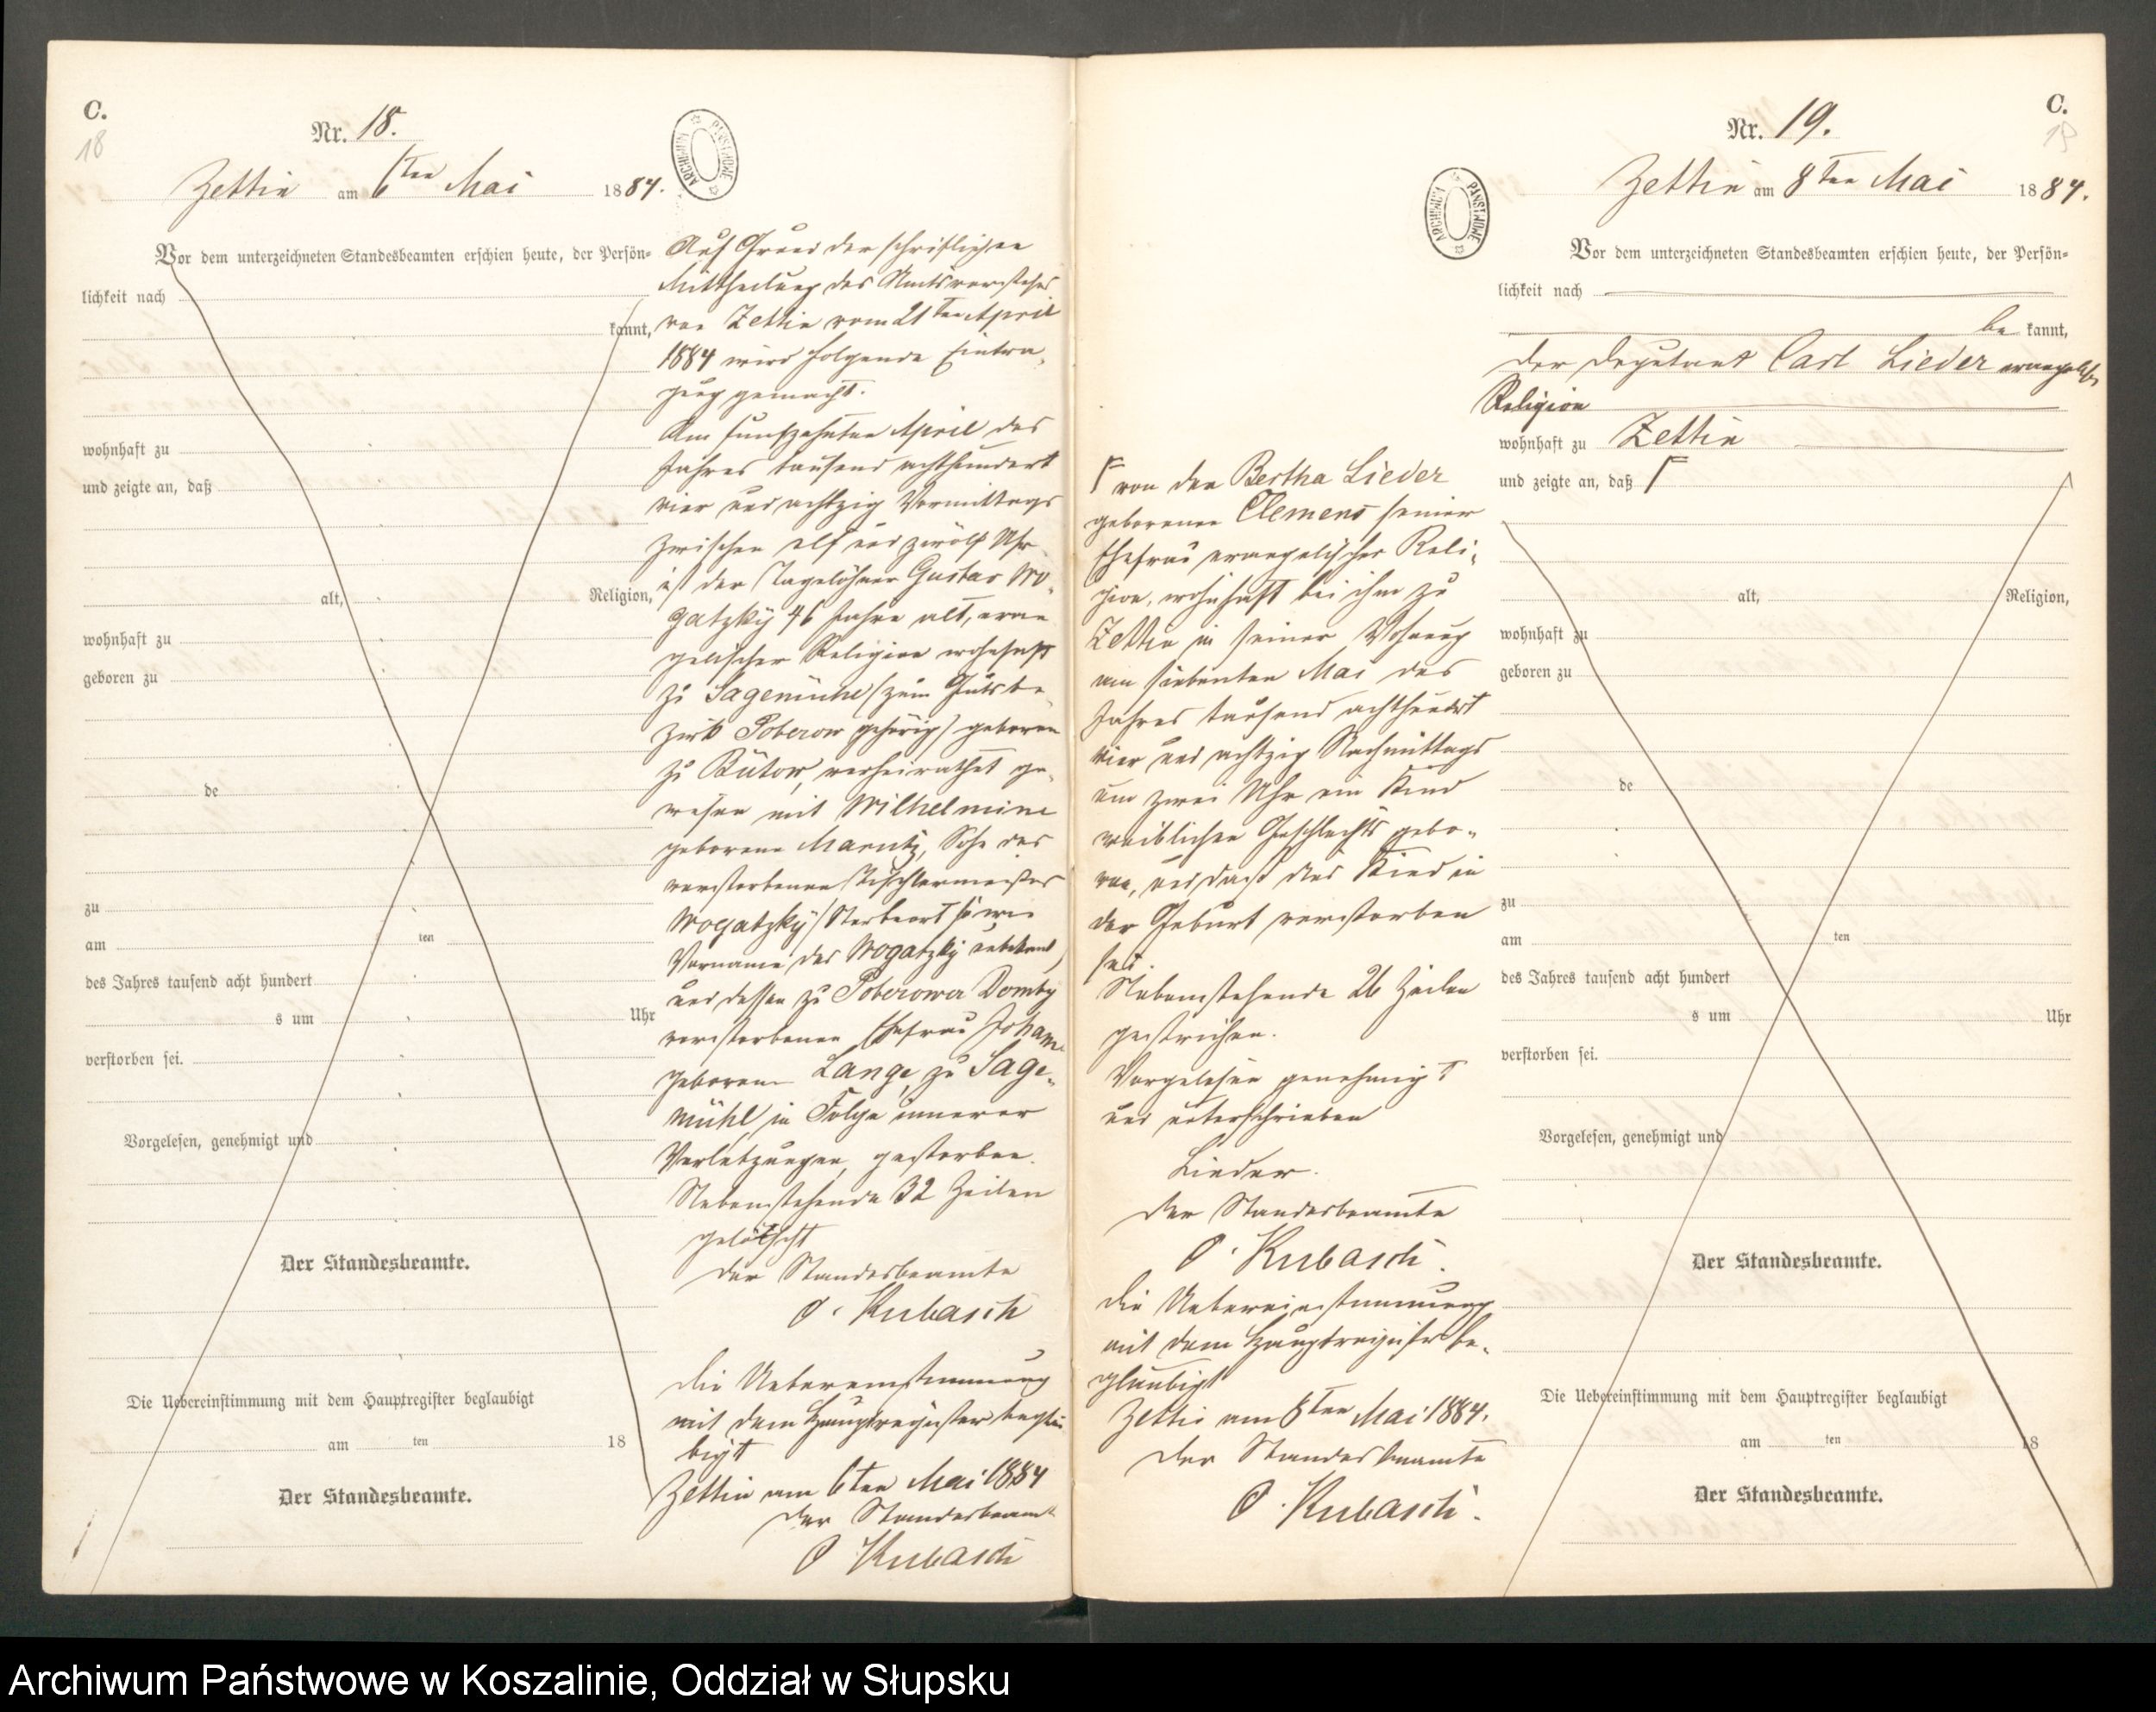 C.
18
Nr. 18.
Zettin am 6ten Mai 1884.
ARCHIWUM PAŃSTWOWE
Vor dem unterzeichneten Standesbeamten erschien heute, der Persön-
lichkeit nach
kannt,
wohnhaft zu
und zeigte an, daß
alt, Religion,
wohnhaft zu
geboren zu
de
zu
am ten
des Jahres tausend acht hundert
s um Uhr
verstorben sei.
Vorgelesen, genehmigt und
Der Standesbeamte.
Die Uebereinstimmung mit dem Hauptregister beglaubigt
am ten 18
Der Standesbeamte.
Auf Grund der schriftlichen
Mittheilung des Amtsvorstehers
von Zettin vom 21ten April
1884 wird folgende Eintra-
gung gemacht.
Am funfzehnten April des
Jahres tausend achthundert
vier und achtzig Vormittags
zwischen elf und zwölf Uhr
ist der Tagelöhner Gustav Wo-
gatzky 46 Jahre alt, evan
gelischer Religion wohnhaft
zu Sagemühl (zum Gutsbe
zirk Poberow gehörig) geboren
zu Bütow, verheirathet ge-
wesen mit Wilhelmine
geborene Sohn des
verstorbenen Tischlermeister
Wogatzky (Sterbeort so wie
Vorname des Wogatzky unbekannt)
und dessen zu Poberower
verstorbenen Ehefrau Johanne
geborene Lange, zu Sage-
mühl, in Folge innerer
Verletzungen, gestorben.
Nebenstehende 32 Zeilen
gelöscht
Der Standesbeamte
O. Kubasch
Die Uebereinstimmung
mit dem Hauptregister beglau
bigt
Zettin am 6ten Mai 1884
Der Standesbeamte
O Kubasch
C.
19
Nr. 19.
Zettin am 8ten Mai 1884.
ARCHIWUM PAŃSTWOWE
Vor dem unterzeichneten Standesbeamten erschien heute, der Persön-
lichkeit nach
be kannt,
der Deputant Carl Lieder evangelisch
Religion
wohnhaft zu Zettin
und zeigte an, daß Γ
alt, Religion,
wohnhaft zu
geboren zu
de
zu
am ten
des Jahres tausend acht hundert
s um Uhr
verstorben sei.
Vorgelesen, genehmigt und
Der Standesbeamte.
Die Uebereinstimmung mit dem Hauptregister beglaubigt
am ten 18
Der Standesbeamte.
Γ von der Bertha Lieder
geborenen Clemens seiner
Ehefrau evangelischer Reli-
gion, wohnhaft bei ihm zu
Zettin in seiner Wohnung
am siebenten Mai des
Jahres tausend achthundert
vier und achtzig Nachmittags
um zwei Uhr ein Kind
weiblichen Geschlechts gebo-
ren, und dass das Kind in
der Geburt verstorben
sei.
Nebenstehende 26 Zeilen
gestrichen.
Vorgelesen genehmigt
und unterschrieben
Lieder.
Der Standesbeamte
O. Kubasch.
Die Uebereinstimmung
mit dem Hauptregister be-
glaubigt
Zettin am 8ten Mai 1884.
Der Standesbeamte
O. Kubasch.
Archiwum Państwowe w Koszalinie, Oddział w Słupsku